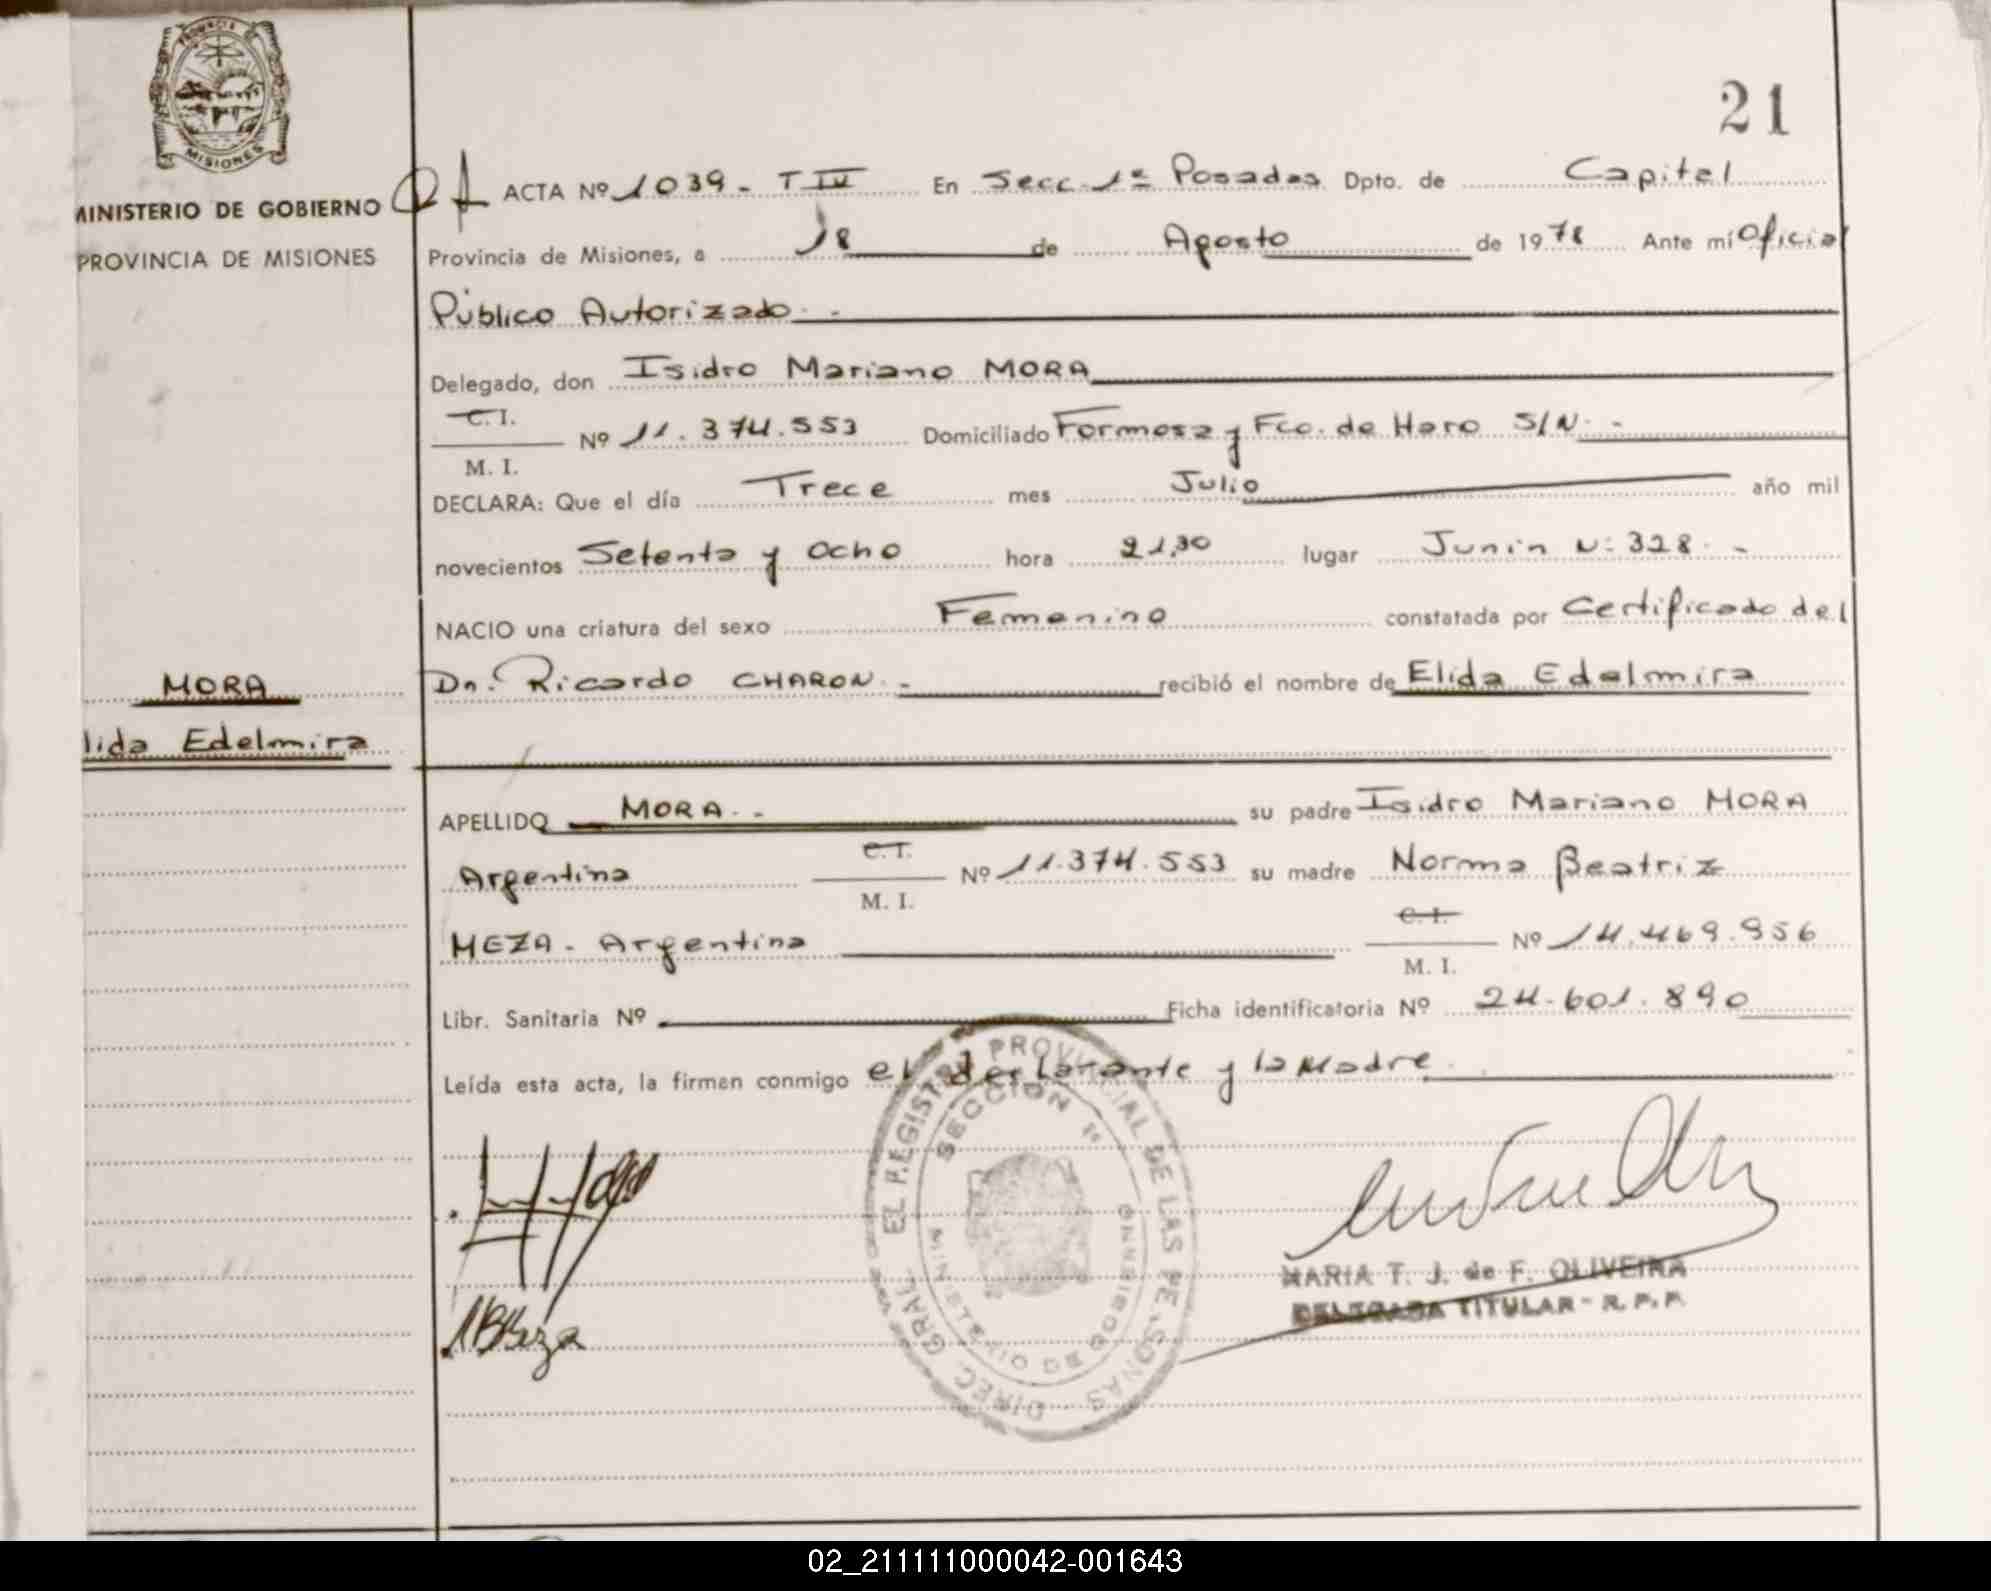 21
PROVINCIA DE
MISIONES
MINISTERIO DE GOBIERNO
PROVINCIA DE MISIONES
ACTA Nº 1039 - T IV En Secc. 1ª Posadas Dpto. de Capital
Provincia de Misiones, a 18 de Agosto de 1978 Ante mí Oficial
Público Autorizado. -
Delegado, don Isidro Mariano MORA
C.I.
Nº 11.374.553 Domiciliado Formosa y Fco. de Haro S/N. -
M. I.
DECLARA: Que el día Trece mes Julio año mil
novecientos Setenta y Ocho hora 21,30 lugar Junin Nº 328. -
NACIO una criatura del sexo Femenino constatada por Certificado del
Dn. Ricardo CHARON. - recibió el nombre de Elida Edelmira
MORA
lida Edelmira
APELLIDO MORA. - su padre Isidro Mariano MORA
C.I.
Argentina Nº 11.374.553 su madre Norma Beatriz
M. I.
C.I.
MEZA - Argentina Nº 14.469.956
M. I.
Libr. Sanitaria Nº Ficha identificatoria Nº 24.601.890
Leída esta acta, la firman conmigo el declarante y la Madre.
DIREC. GRAL. DEL REGISTRO PROVINCIAL DE LAS PERSONAS
SECCION 1ª
MINISTERIO DE GOBIERNO
MARIA T. J. de F. OLIVEIRA
DELEGADA TITULAR - R.P.P.
NBMeza
02_211111000042-001643